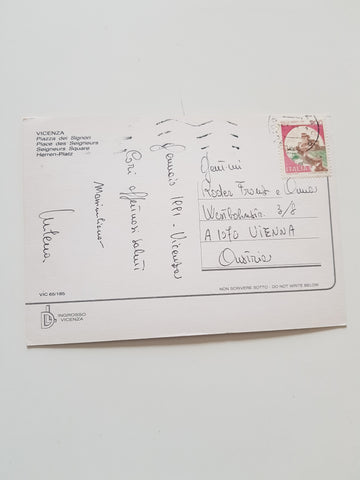 VICENZA
Piazza dei Signori
Place des Seigneurs
Seigneurs Square
Herren-Platz
Gennaio 1991 - Vicenza
Cari affettuosi saluti
Massimiliano
Milena
ITALIA
Gent.mi
Roder Franz e Anna
A 1070 VIENNA
Austria
VIC 65/185
NON SCRIVERE SOTTO - DO NOT WRITE BELOW
INGROSSO
VICENZA